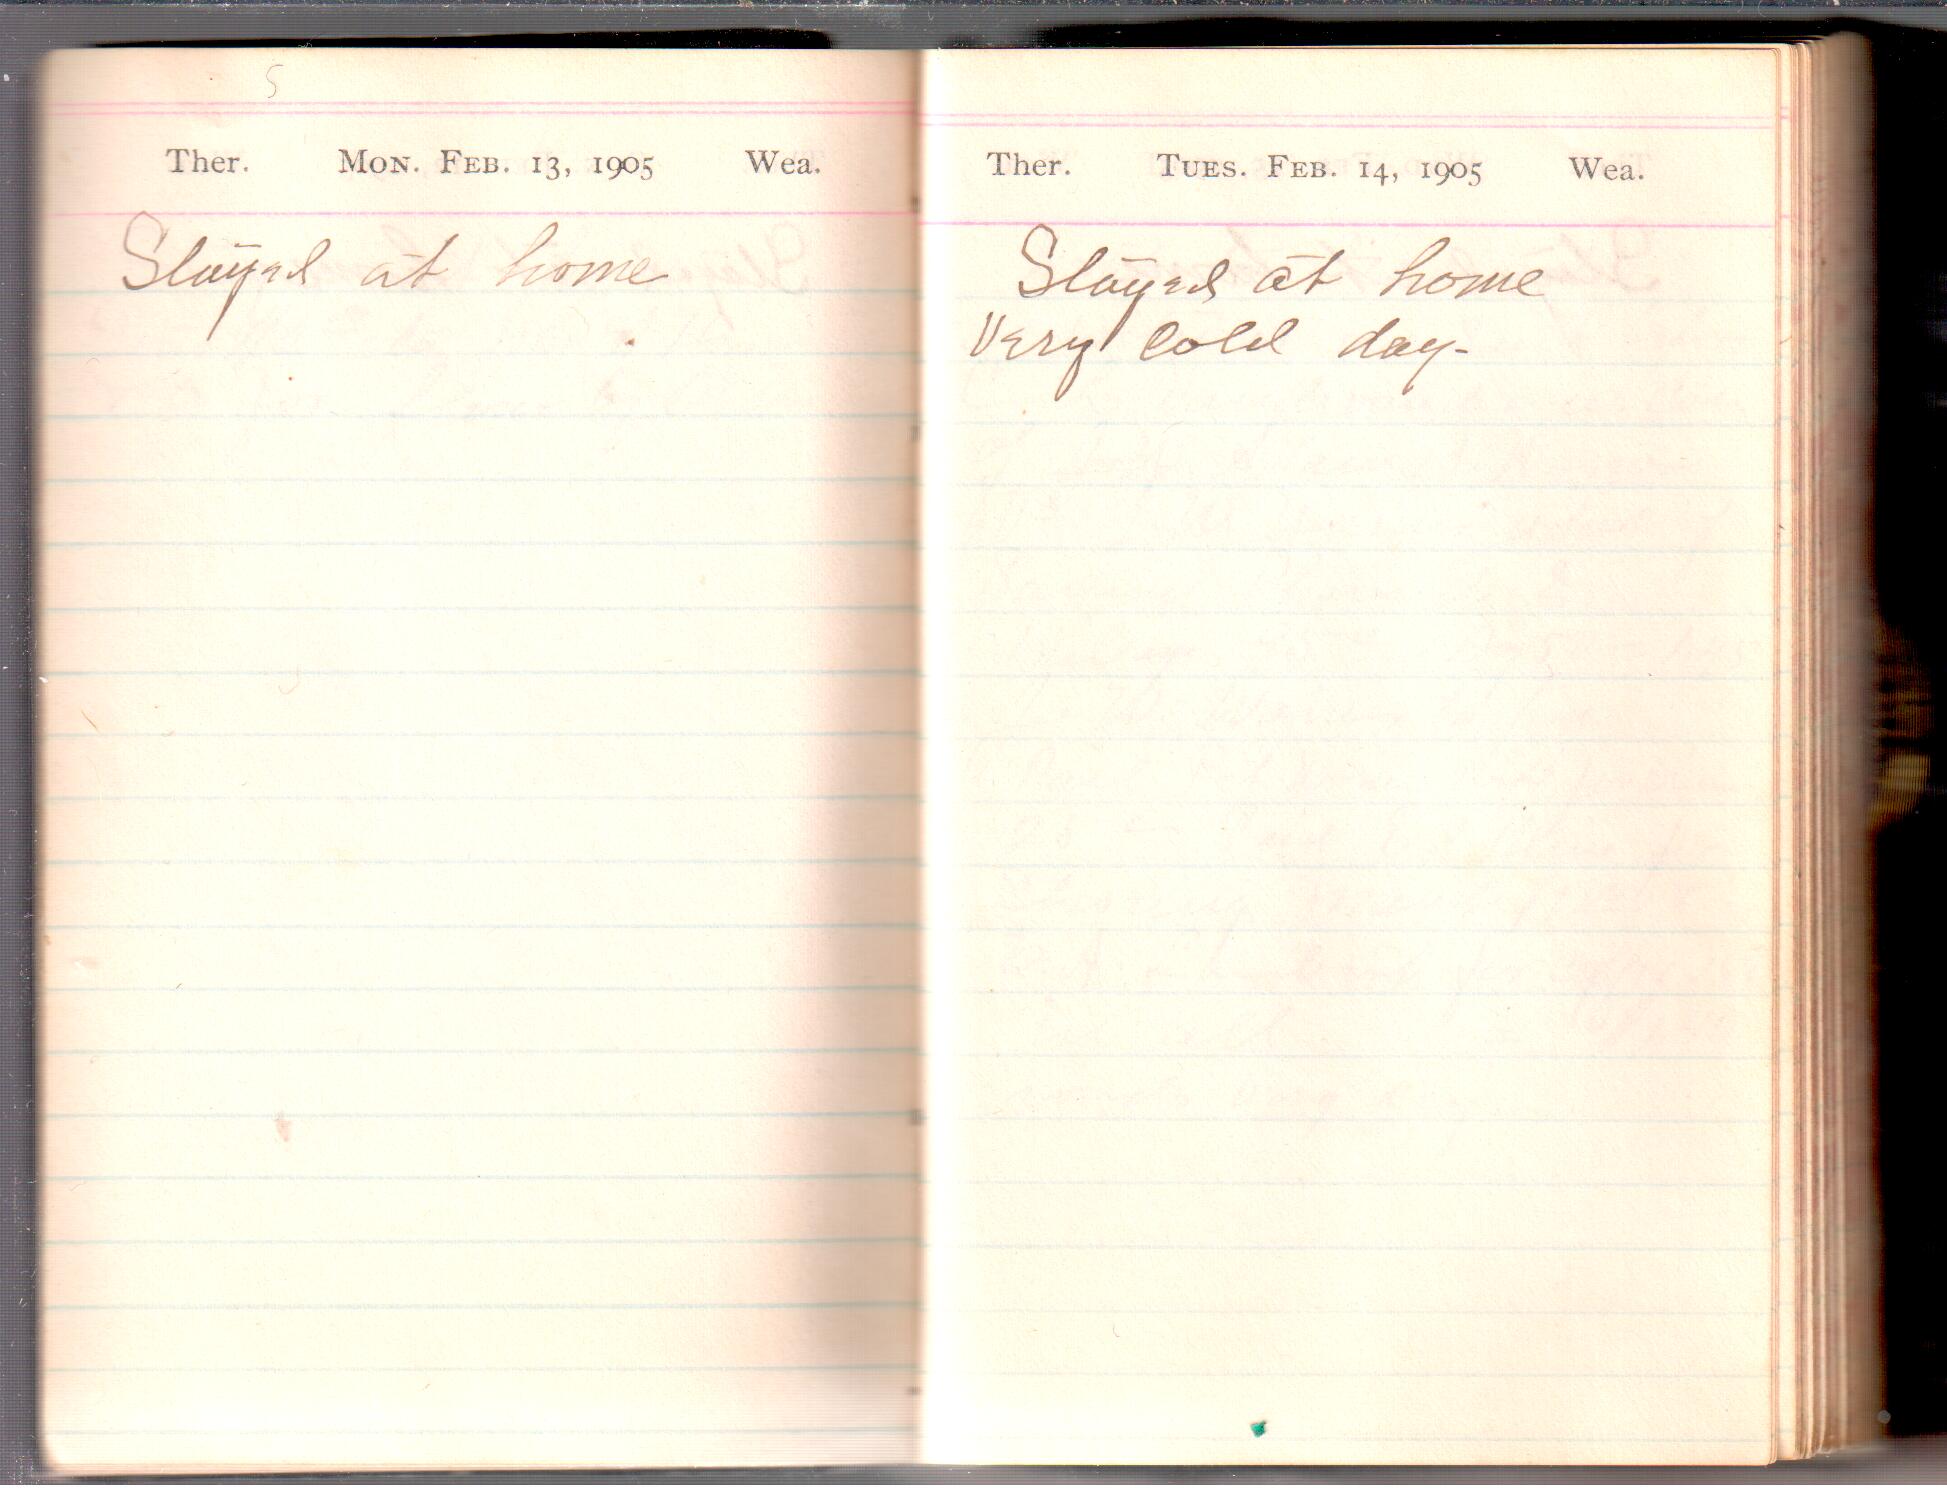 Ther. Mon. Feb. 13, 1905 Wea.
Stayed at home
Ther. Tues. Feb. 14, 1905 Wea.
Stayed at home
Very cold day-